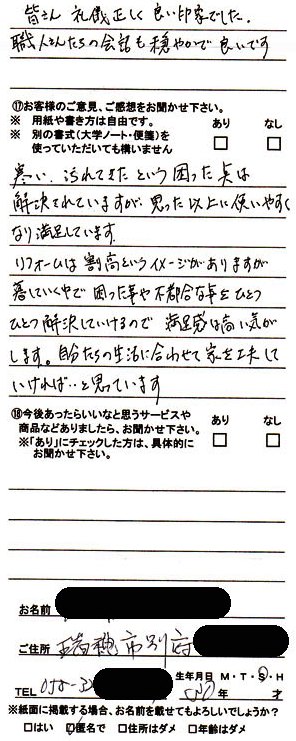 皆さん 礼儀正しく 良い印象でした。
職人さんたちの会話も穏やかで良いです
⑰お客様のご意見、ご感想をお聞かせ下さい。
※ 用紙や書き方は自由です。 あり なし
※ 別の書式(大学ノート・便箋)を
使っていただいても構いません □ □
寒い、汚れてきたという困った点は
解決されていますが 思った以上に使いやすく
なり満足しています。
リフォームは割高というイメージがありますが
暮していく中で困った事や不都合な点をひとつ
ひとつ解決していけるので 満足感は高い気が
します。自分たちの生活に合わせて家を工夫して
いければ‥と思っています
⑱今後あったらいいなと思うサービスや
商品などありましたら、お聞かせ下さい。 あり なし
※「あり」にチェックした方は、具体的に
お聞かせ下さい。 □ □
お名前
ご住所 瑞穂市別府
生年月日 M・T・S・H
TEL 058-32 年 才
※紙面に掲載する場合、お名前を載せてもよろしいでしょうか?
□はい ☑匿名で □住所はダメ □年齢はダメ